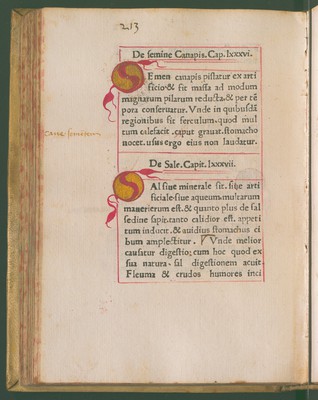 213
De semine Canapis. Cap. lxxxvi.
SEmen canapis pistatur ex arti
ficio·& fit massa ad modum
magnarum pilarum reducta.& per tẽ
pora conseruatur. Vnde in quibusdã
regionibus fit ferculum. quod mul
tum calefacit .caput grauat. stomacho
nocet. usus ergo eius non laudatur.
De Sale. Capit. lxxxvii.
SAl siue minerale sit. siue arti
ficiale·siue aqueum·multarum
manerierum est.& quanto plus de sal
sedine sapit·tanto calidior est. appeti
tum inducit .& auidius stomachus ci
bum amplectitur. Vnde melior
causatur digestio; cum hoc quod ex
sua natura· sal digestionem acuit
Fleuma & crudos humores inci